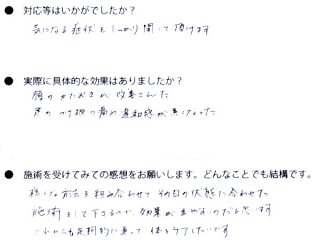 ● 対応等はいかがでしたか？
気になる症状をしっかり聞いて頂けます
● 実際に具体的な効果はありましたか？
顔のかたさが改善された
足のつけ根の痛み違和感が無くなった
● 施術を受けてみての感想をお願いします。どんなことでも結構です。
様々な方法を組み合わせてその日の状態に合わせた
施術をして下さるので効果が出やすいのだと思います
これからも定期的に通って体をケアしたいです